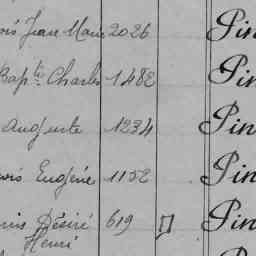 ois Jean Marie 2026 Pin
Bapte Charles 1482 Pin
Auguste 1234 Pin
ois Eugénie 1152 Pin
Désiré 619 Pin
Henri